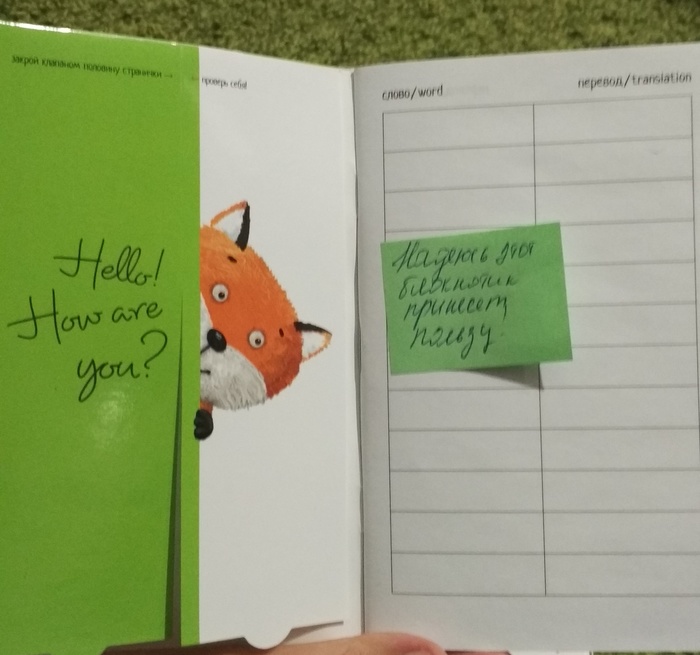 закрой клапаном половину странички →
← проверь себя!
Hello!
How are
you?
слово/word
перевод/translation
Надеюсь этот
блокнотик
принесет
пользу.